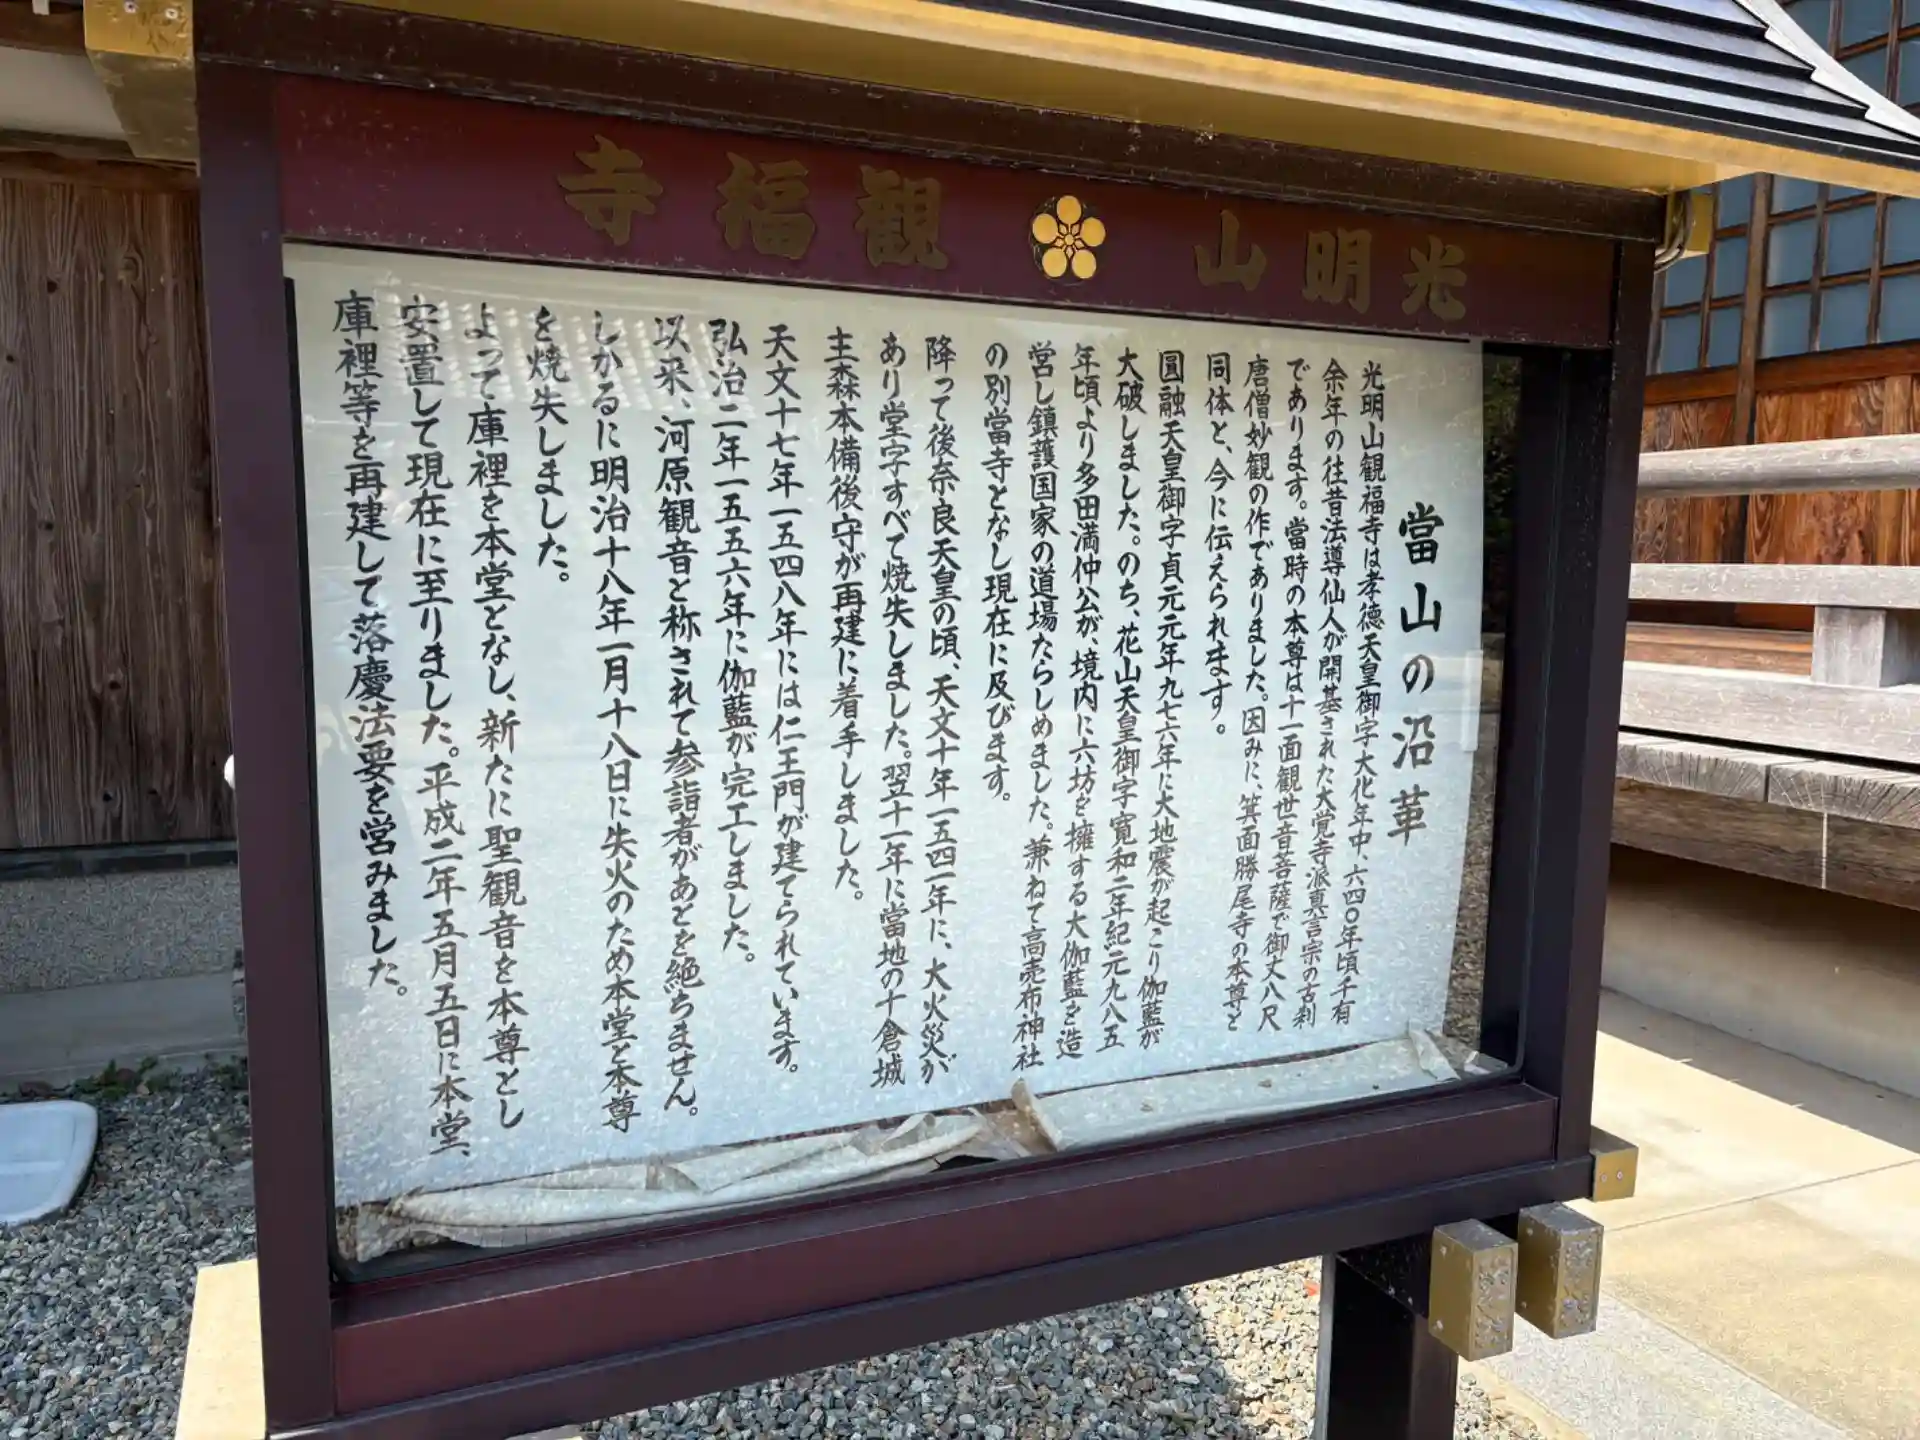 光明山 観福寺
當山の沿革
光明山観福寺は孝徳天皇御字大化年中、六四〇年頃千有
余年の往昔法導仙人が開基された大覚寺派真言宗の古刹
であります。當時の本尊は十一面観世音菩薩で御丈八尺
唐僧妙観の作でありました。因みに、箕面勝尾寺の本尊と
同体と、今に伝えられます。
圓融天皇御字貞元元年九七六年に大地震が起こり伽藍が
大破しました。のち、花山天皇御字寛和二年紀元九八五
年頃より多田満仲公が、境内に六坊を擁する大伽藍を造
営し鎮護国家の道場たらしめました。兼ねて高売布神社
の別當寺となし現在に及びます。
降って後奈良天皇の頃、天文十年一五四一年に、大火災が
あり堂字すべて焼失しました。翌十一年に當地の十倉城
主森本備後守が再建に着手しました。
天文十七年一五四八年には仁王門が建てられています。
弘治二年一五五六年に伽藍が完工しました。
以来、河原観音と称されて参詣者があとを絶ちません。
しかるに明治十八年一月十八日に失火のため本堂と本尊
を焼失しました。
よって庫裡を本堂となし、新たに聖観音を本尊とし
安置して現在に至りました。平成二年五月五日に本堂、
庫裡等を再建して落慶法要を営みました。